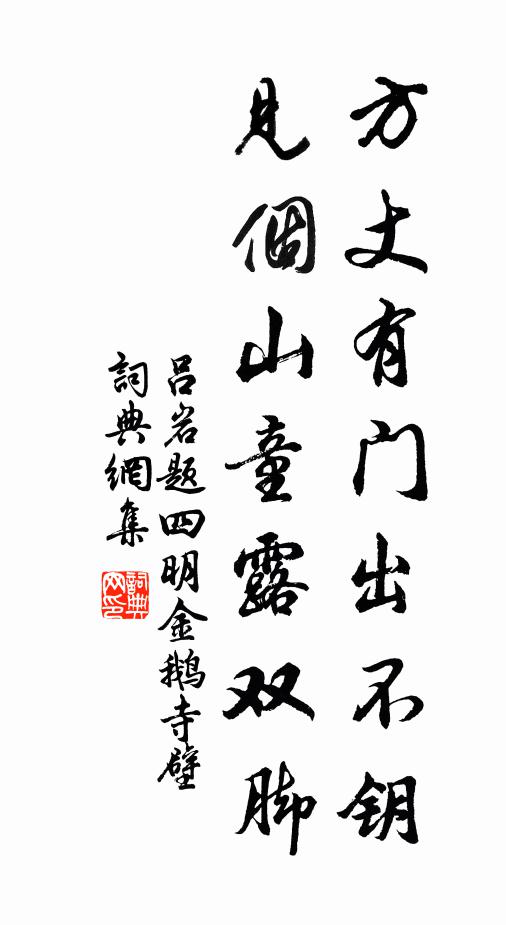 方丈有门出不钥
见個山童露双脚
吕岩题四明金鹅寺壁
詞典網集
詞典网印